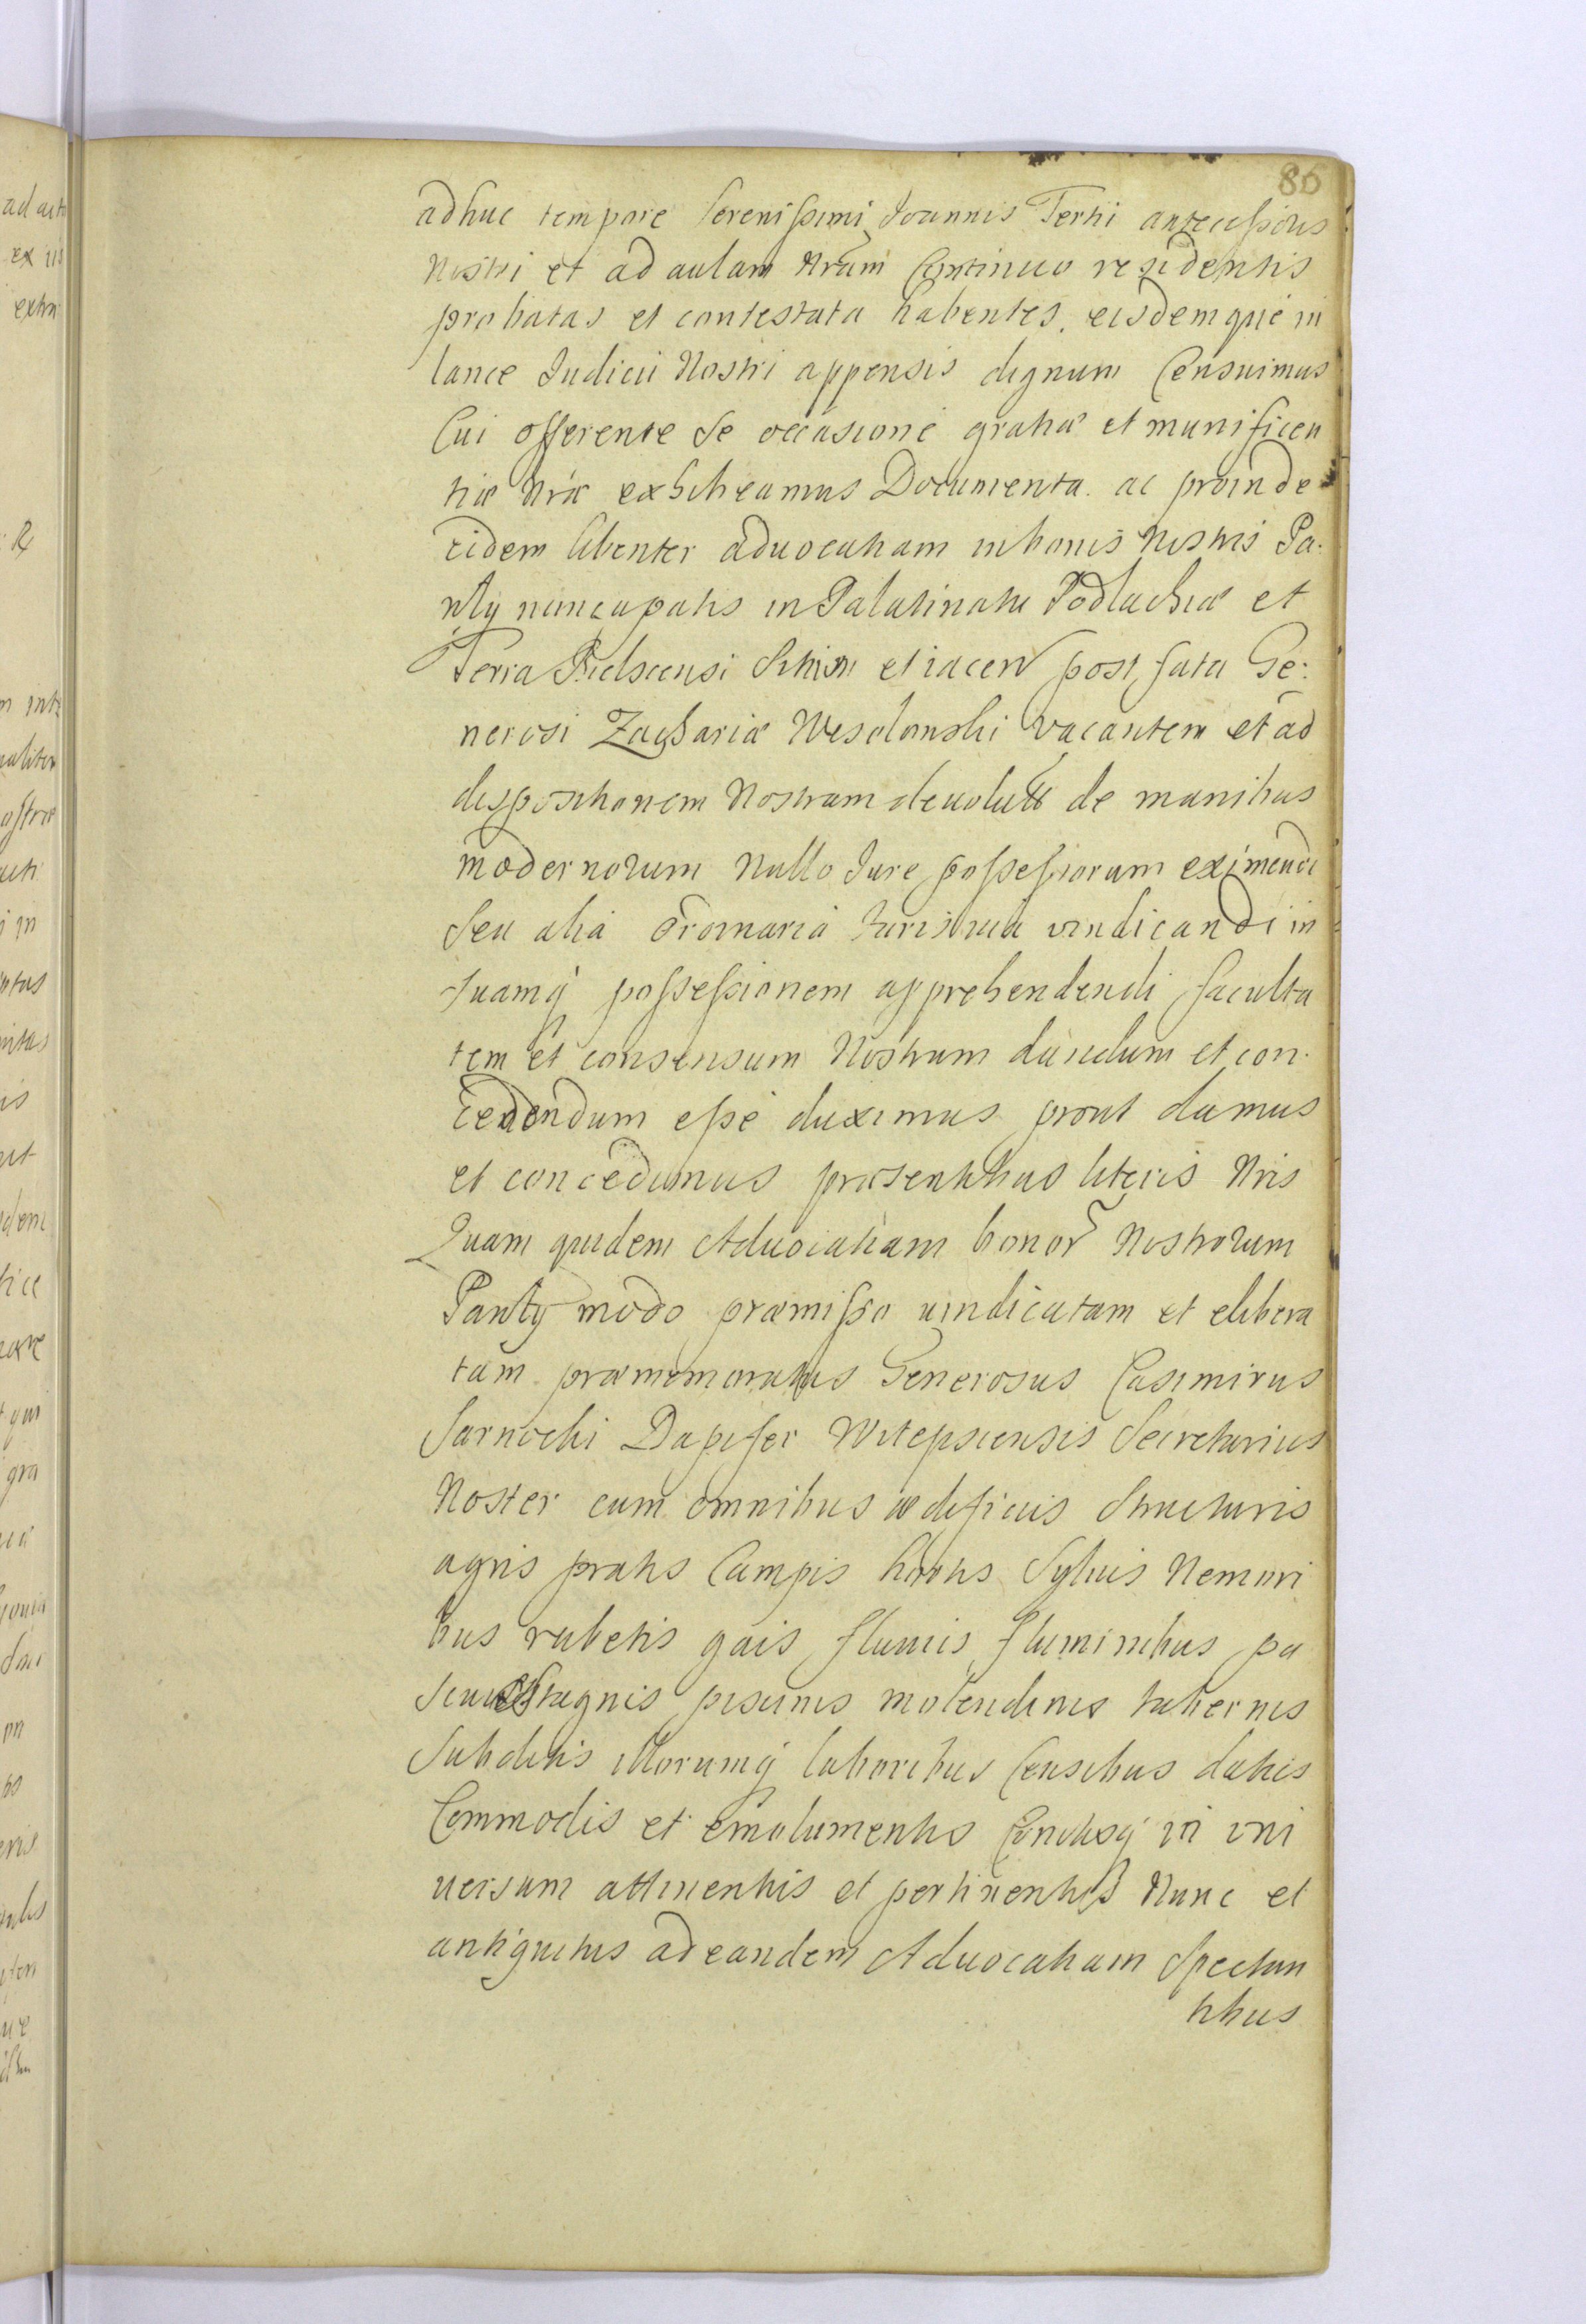 86
adhuc tempore Serenissimi Joannis Tertii antecessoris
Nostri et ad aulam Nram Continuo residentis
probatas et contestata habentes. eisdemque in
lance Judicii Nostri appensis dignum Censuimus
Cui offerente se occasione gratiæ et munificen
tiæ Nræ exhibeamus Documenta. ac proinde
eidem libenter aduocatiam in bonis Nostris Pa.
nty nuncupatis in Palatinatu Podlachiæ et
Terra Bielscensi Sitam et iacen post fata Ge:
nerosi Zachariæ Wesolowski vacantem et ad
dispositionem Nostram deuolutã de manibus
modernorum Nullo Jure possessorum eximendi
Seu alia ordinaria Juris via vindicandi in
suamq possessionem apprehendendi faculta
tem et consensum Nostrum dandum et con.
cedendum esse duximus prout damus
et concedimus præsentibus literis Nris
Quam quidem Aduocatiam bonor Nostrorum
Panty modo præmisso uindicatam et elibera
tam præmemoratus Generosus Casimirus
Sarnocki Dapifer Witepscensis Secretarius
Noster cum omnibus ædificiis Structuris
agris pratis Campis hortis Syluis Nemori
bus rubetis gais fluuiis fluminibus pa
scuis Stagnis piscinis molendinis tabernis
Subditis illorumq laboribus Censibus datiis
Commodis et emolumentis Cunctisq in vni
uersum attinentiis et pertinentiis Nunc et
antiquitus ad eandem Aduocatiam Spectan
tibus